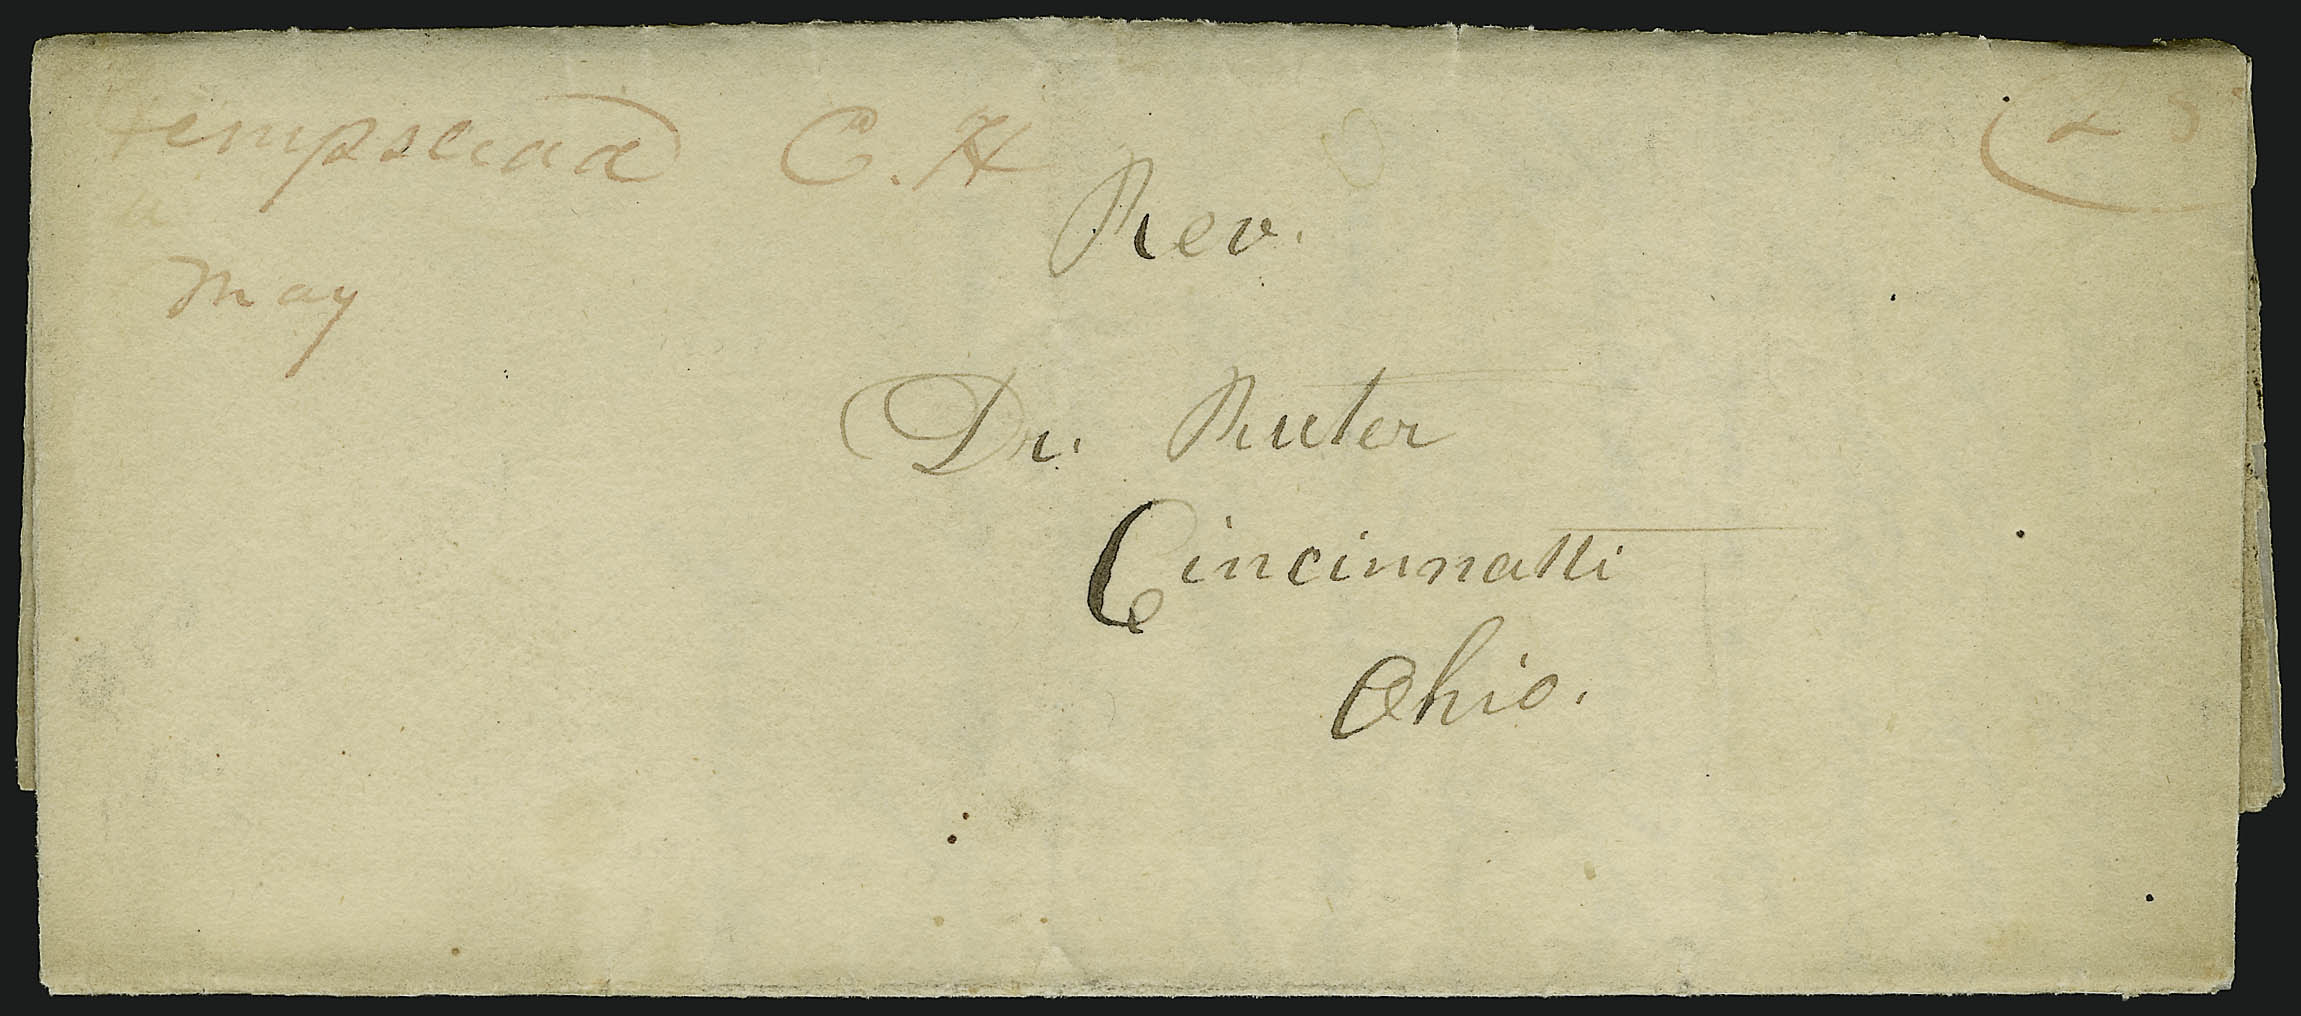 Hempstead C.H
25
May
Rev.
Dr. Ruter
Cincinnatti
Ohio.